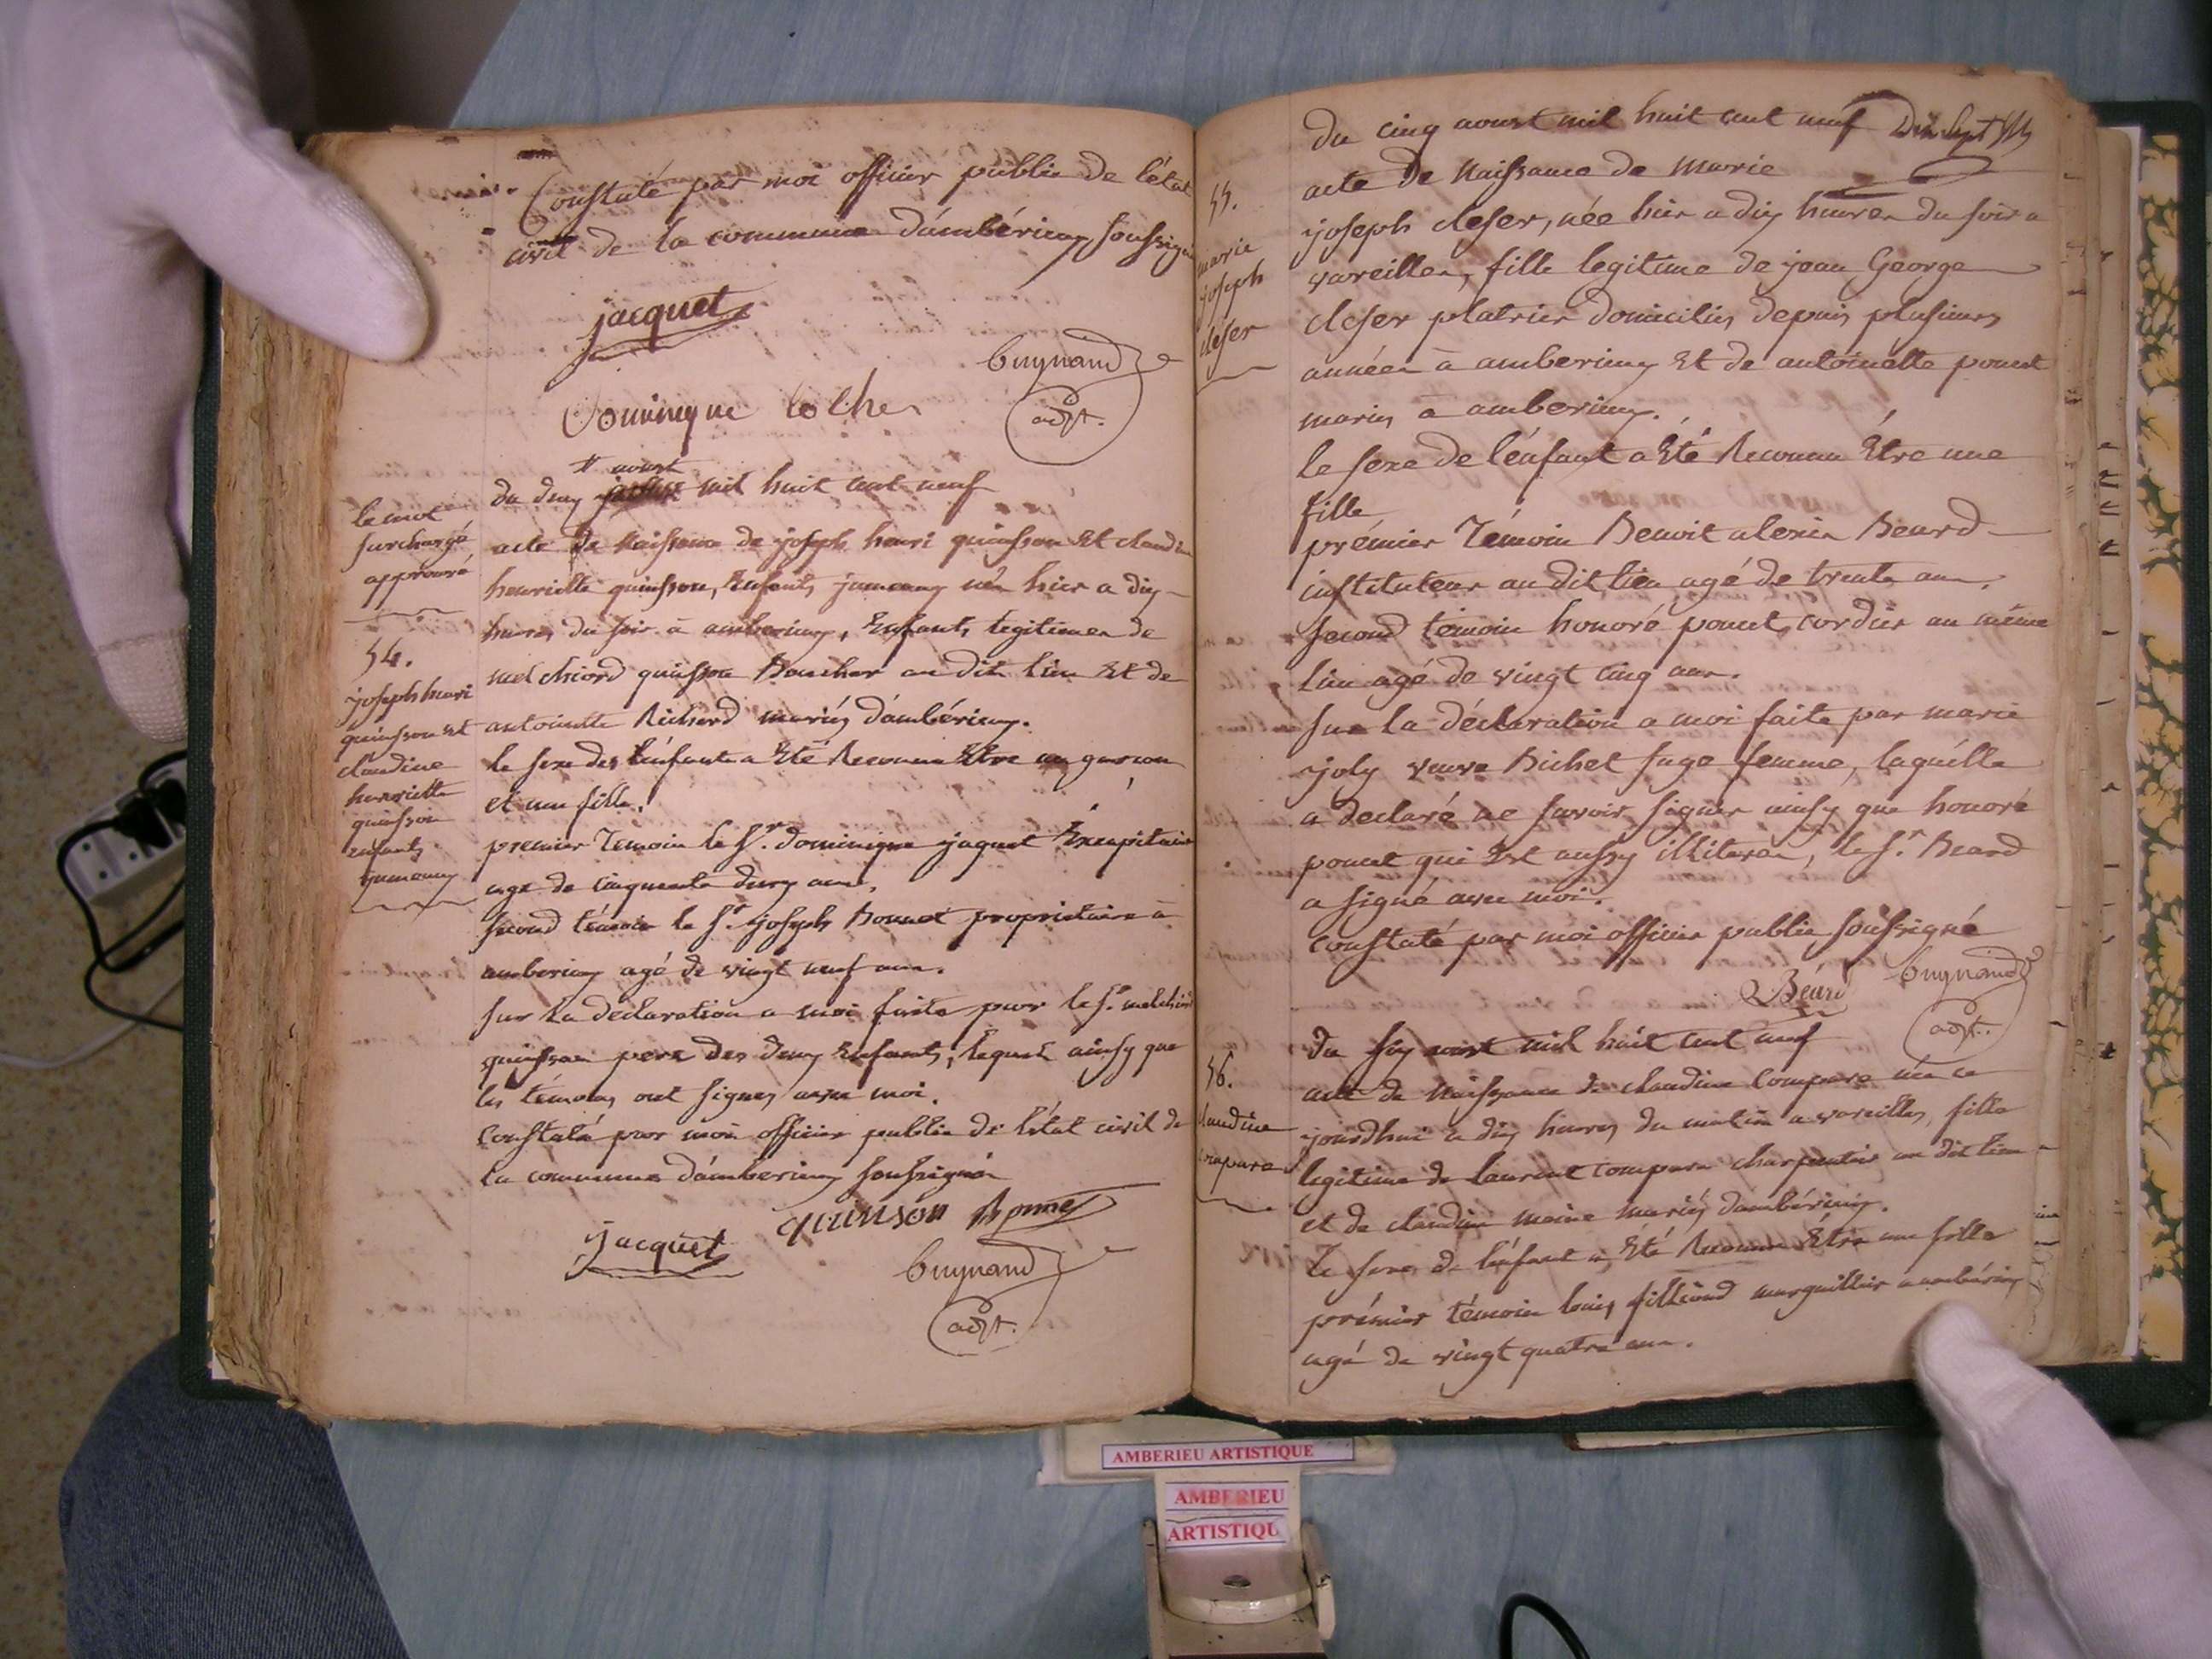 Constaté par moi officier public de l'état
civil de la commune d'ambérieux soussigné
jacquet
buynand
adjt.
Dominique
aoust
du deux mil huit cent neuf
le mot
surchargé
approuvé
acte de Naissance de joseph henri quinsson Et claudine
henriette quinsson, Enfants jumeaux nés hier a dix
heures du soir à amberieux, Enfants legitimes de
melchiord quinsson Boucher au dit lieu Et de
antoinette Richerd mariés d'ambérieux.
le sexe des l'enfants a Eté Reconnu Etre un garson
et une fille.
54.
joseph henri
quinsson Et
claudine
henriette
quinsson
enfants
jumeaux
premier Temoin le Sr. dominique jaquet Excapitaine
age de cinquante deux ans.
second témoin le Sr. joseph Bonnet propriétaire à
amberieux agé de vingt neuf ans.
sur la déclaration a moi faite par le Sr. melchior
quinsson pere des deux Enfants, lequel ainsy que
les témoins ont signés avec moi.
Constaté par moi officier public de l'état civil de
la commune d'amberieux soussignés
quinson Bonnet
jacquet
buynand
adjt.
du cinq aoust mil huit cent neuf Dix Sept
acte de Naissance de marie
joseph cleser, née hier a dix heures du soir a
vareilles, fille legitime de jean George
cleser platrier domicilié depuis plusieurs
années à amberieux Et de antoinette poncet
mariés à amberieux.
le sexe de l'énfant a Eté Reconnu Etre une
fille
55.
marie
joseph
cleser
prémier Témoin Benoit alexis Beard
instituteur au dit lieu agé de trente ans.
second témoin honoré poncet cordier au même
lieu agé de vingt cinq ans.
sur la déclaration a moi faite par marie
joly veuve Bichet sage femme, laquelle
a declaré ne savoir signer ainsy que honoré
poncet qui Est aussy illiteré, le Sr. Beard
a signé avec moi.
constaté par moi officier public soussigné
Béard
buynand
adjt.
du six aoust mil huit cent neuf
acte de Naissance de claudine Compare née ce
jourdhui a dix heures du matin a vareilles, fille
legitime de laurent compare charpentier au dit lieu
et de claudine moine mariés d'ambérieux.
le sexe de l'énfant a Eté Reconnu Etre une fille
56.
claudine
compare
prémier témoin louis fillioud marguillier a ambérieux
agé de vingt quatre ans.
AMBERIEU ARTISTIQUE
AMBERIEU
ARTISTIQU